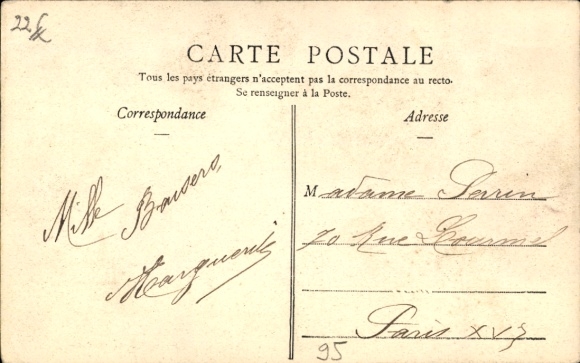 22
CARTE POSTALE
Tous les pays étrangers n'acceptent pas la correspondance au recto.
Se renseigner à la Poste.
Correspondance
Adresse
Mille Baisers
Marguerite
Madame Perrin
70 Rue Lourmel
Paris XV
95